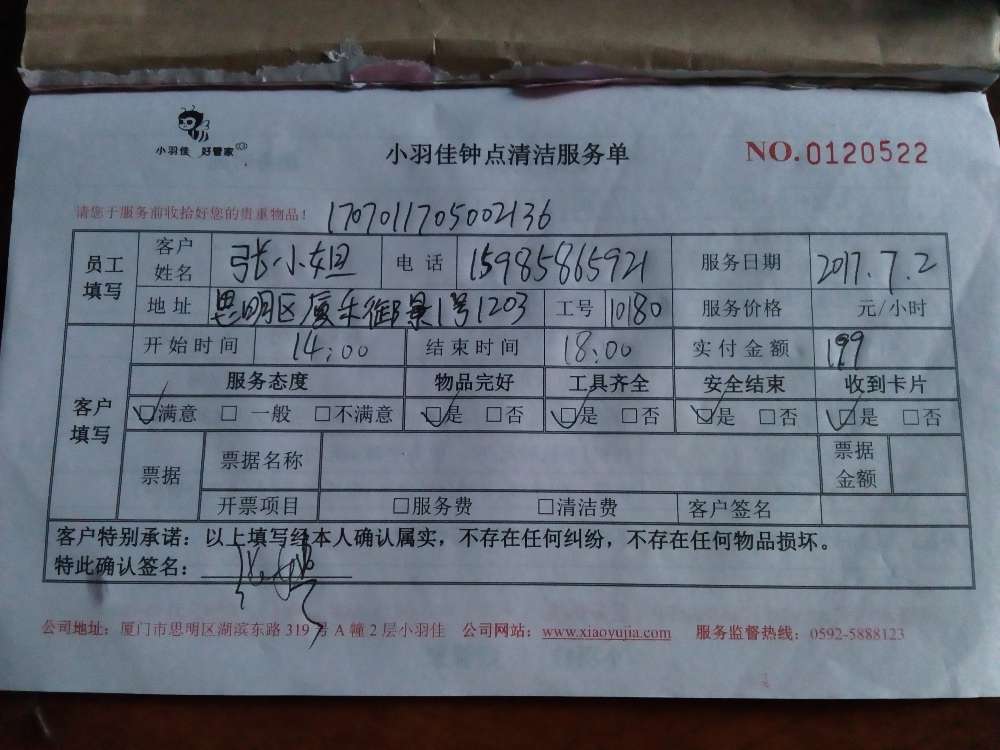 小羽佳 好管家
小羽佳钟点清洁服务单
NO.0120522
请您于服务前收拾好您的贵重物品！ 1707011705002136
员工填写 客户姓名 张小姐 电话 15985865921 服务日期 2017.7.2
地址 思明区厦禾御景1号1203 工号 10180 服务价格 元/小时
客户填写 开始时间 14:00 结束时间 18:00 实付金额 199
服务态度 物品完好 工具齐全 安全结束 收到卡片
☑满意 □一般 □不满意 ☑是 □否 ☑是 □否 ☑是 □否 ☑是 □否
票据 票据名称 票据金额
开票项目 □服务费 □清洁费 客户签名
客户特别承诺：以上填写经本人确认属实，不存在任何纠纷，不存在任何物品损坏。
特此确认签名：
公司地址：厦门市思明区湖滨东路 319 号 A 幢 2 层小羽佳 公司网站：www.xiaoyujia.com 服务监督热线：0592-5888123